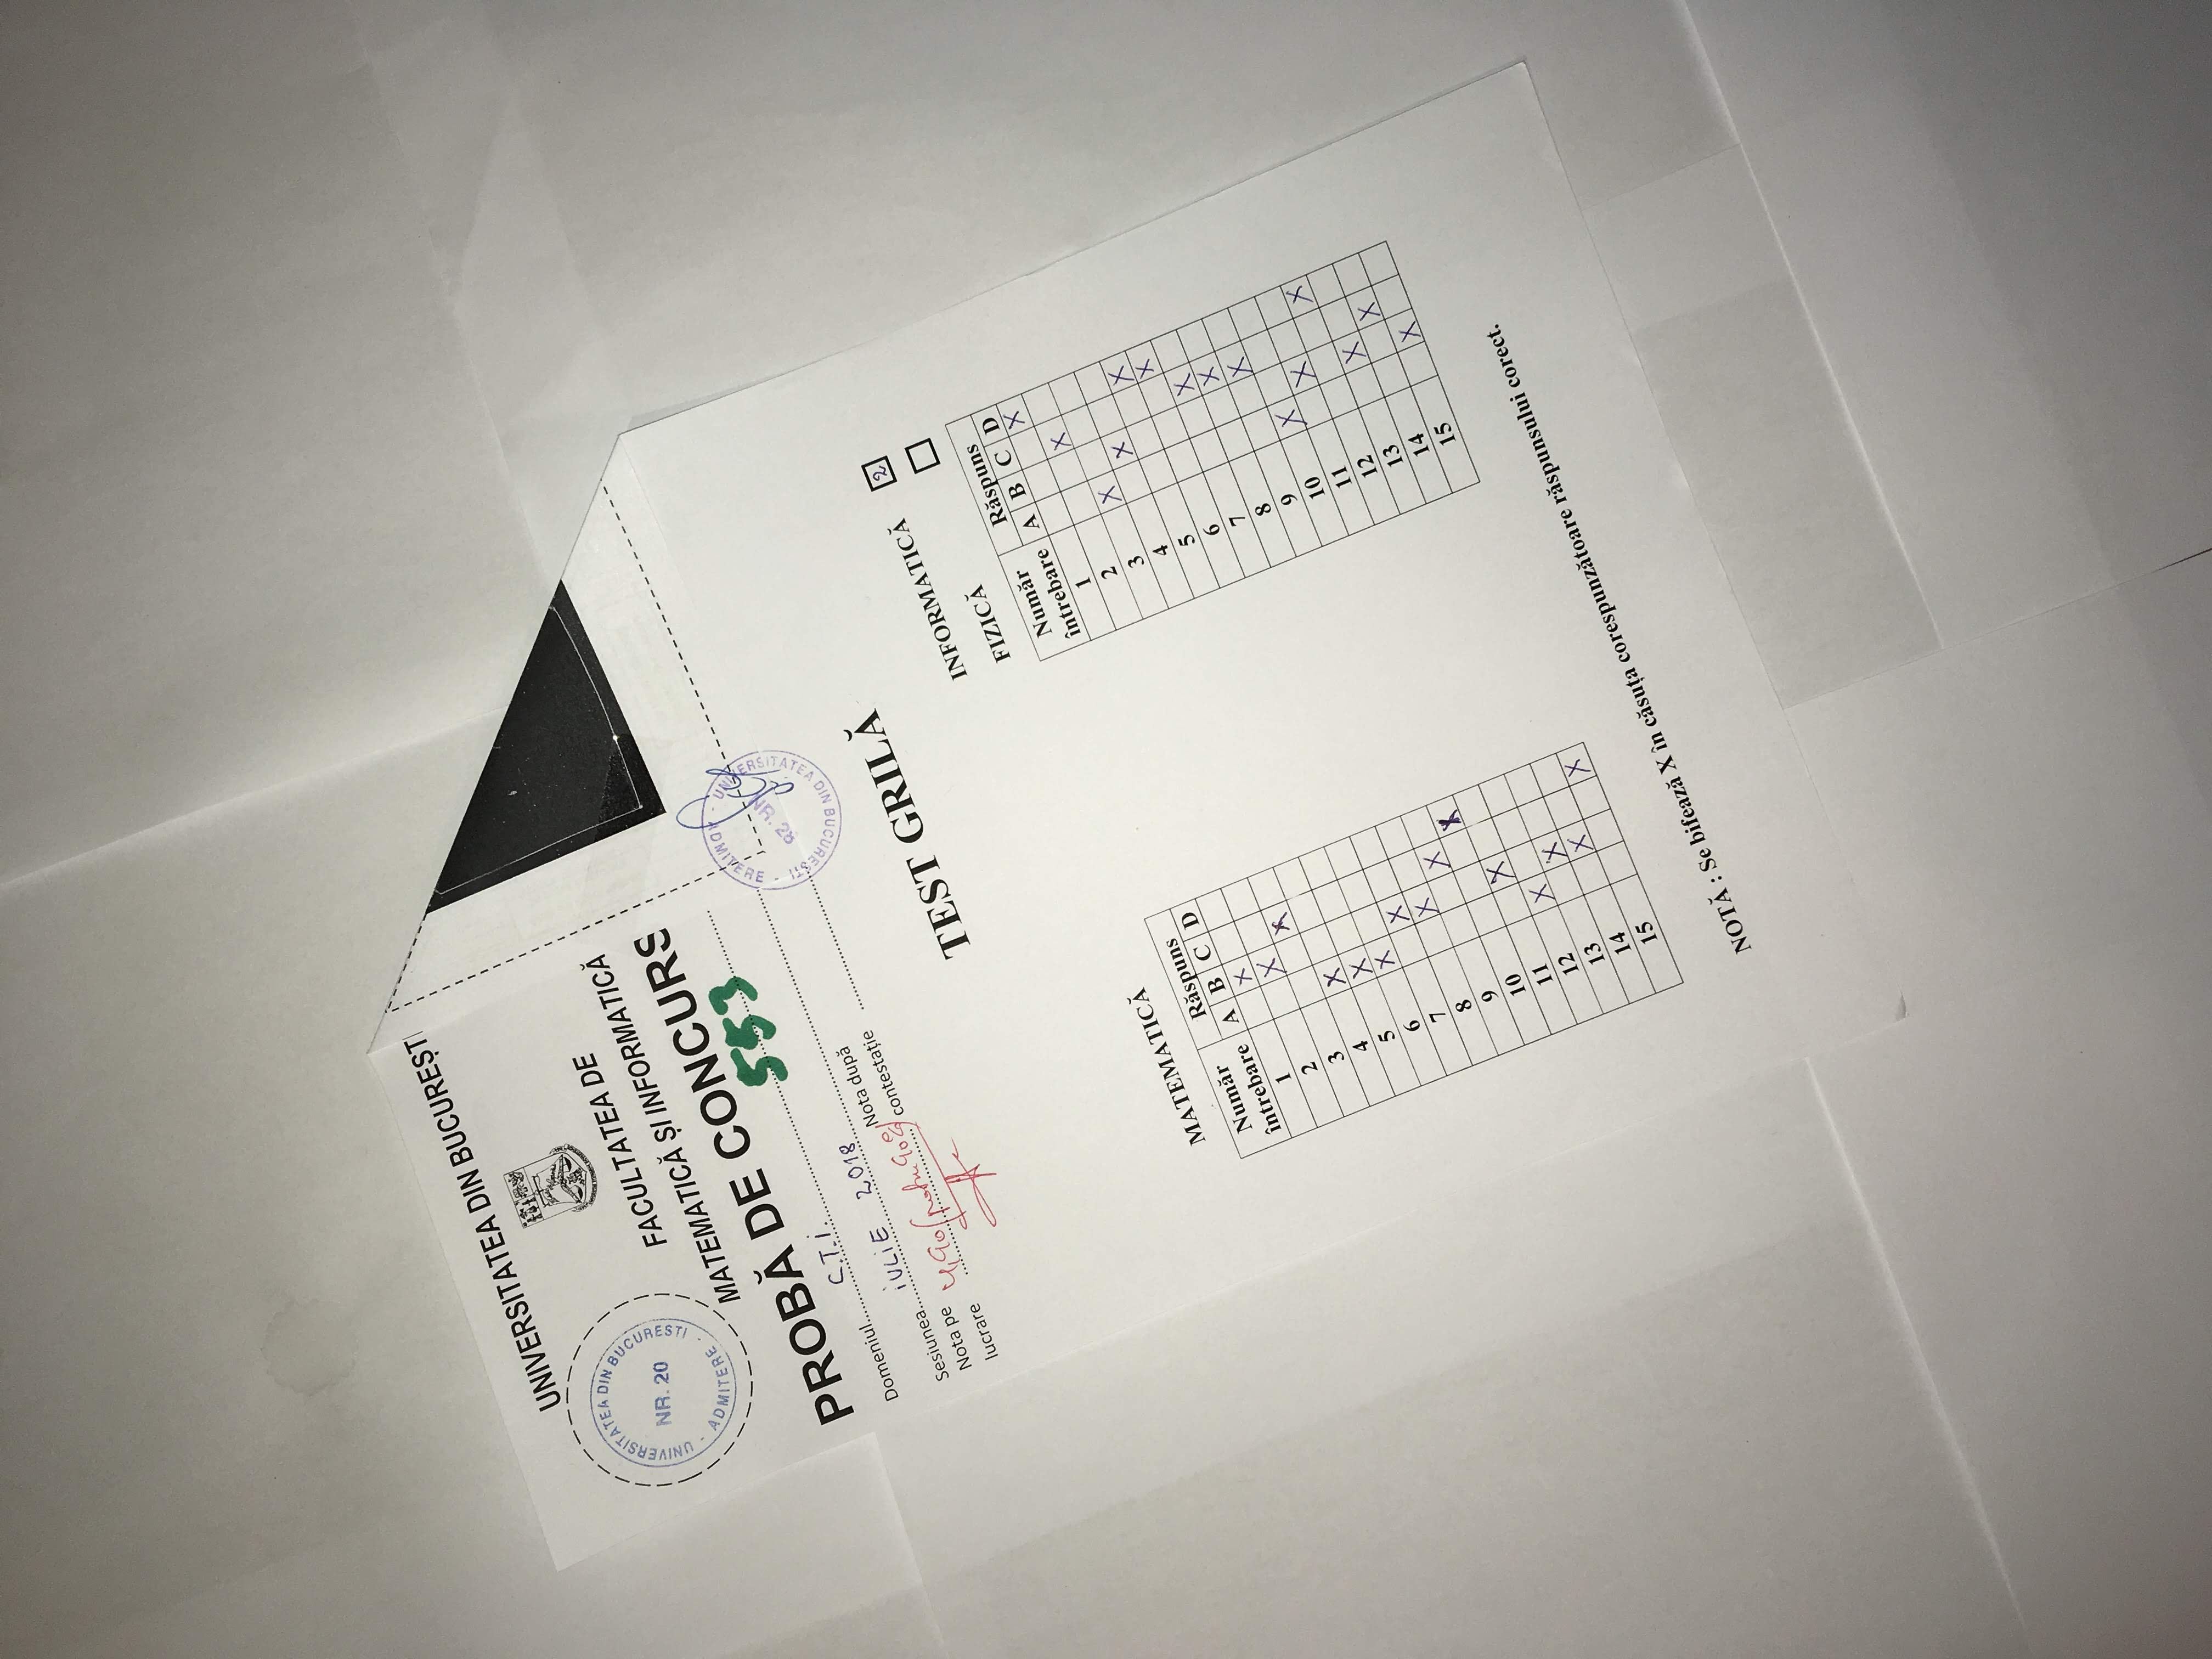 UNIVERSITATEA DIN BUCUREȘT
UNIVERSITATEA DIN BUCURESTI
NR. 20
- ADMITERE -
FACULTATEA DE
MATEMATICĂ ȘI INFORMATICĂ
PROBĂ DE CONCURS
553
Domeniul C.T.I.
Sesiunea IULIE 2018
Nota pe lucrare 4,90 (patru 90%)
Nota după contestație
UNIVERSITATEA DIN BUCURESTI
NR. 28
- ADMITERE -
TEST GRILĂ
INFORMATICĂ 2
FIZICĂ
Număr întrebare Răspuns
A B C D
1 X
2 X
3 X
4 X
5 X
6 X
7 X
8 X
9 X
10 X
11 X
12 X
13 X
14 X
15 X
MATEMATICĂ
Număr întrebare Răspuns
A B C D
1 X
2 X
3 X
4 X
5 X
6 X
7 X
8 X
9 X
10 X
11 X
12 X
13 X
14 X
15 X
NOTĂ : Se bifează X în căsuța corespunzătoare răspunsului corect.